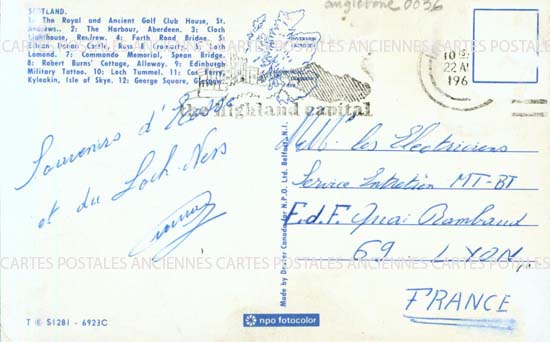 anglerone 0036
SCOTLAND.
1: The Royal and Ancient Golf Club House, St.
Andrews. 2: The Harbour, Aberdeen. 3: Cloch
Lighthouse, Renfrew. 4: Forth Road Bridge. 5:
Eilean Donan Castle, Ross & Cromarty. 6: Loch
Lomond. 7: Commando Memorial, Spean Bridge.
8: Robert Burns' Cottage, Alloway. 9: Edinburgh
Military Tattoo. 10: Loch Tummel. 11: Car Ferry,
Kyleakin, Isle of Skye. 12: George Square, Glasgow.
the highland capital
22 A
196
Souvenirs d'Ecosse
et du Loch Ness
Made by Dexter Canada for N.P.O. Ltd. Belfast, N.I.
MM les Electriciens
Service Entretien MT-BT
E.d.F. Quai Rambaud
69 LYON
FRANCE
CARTES POSTALES ANCIENNES
T © S1281 - 6923C
npo fotocolor